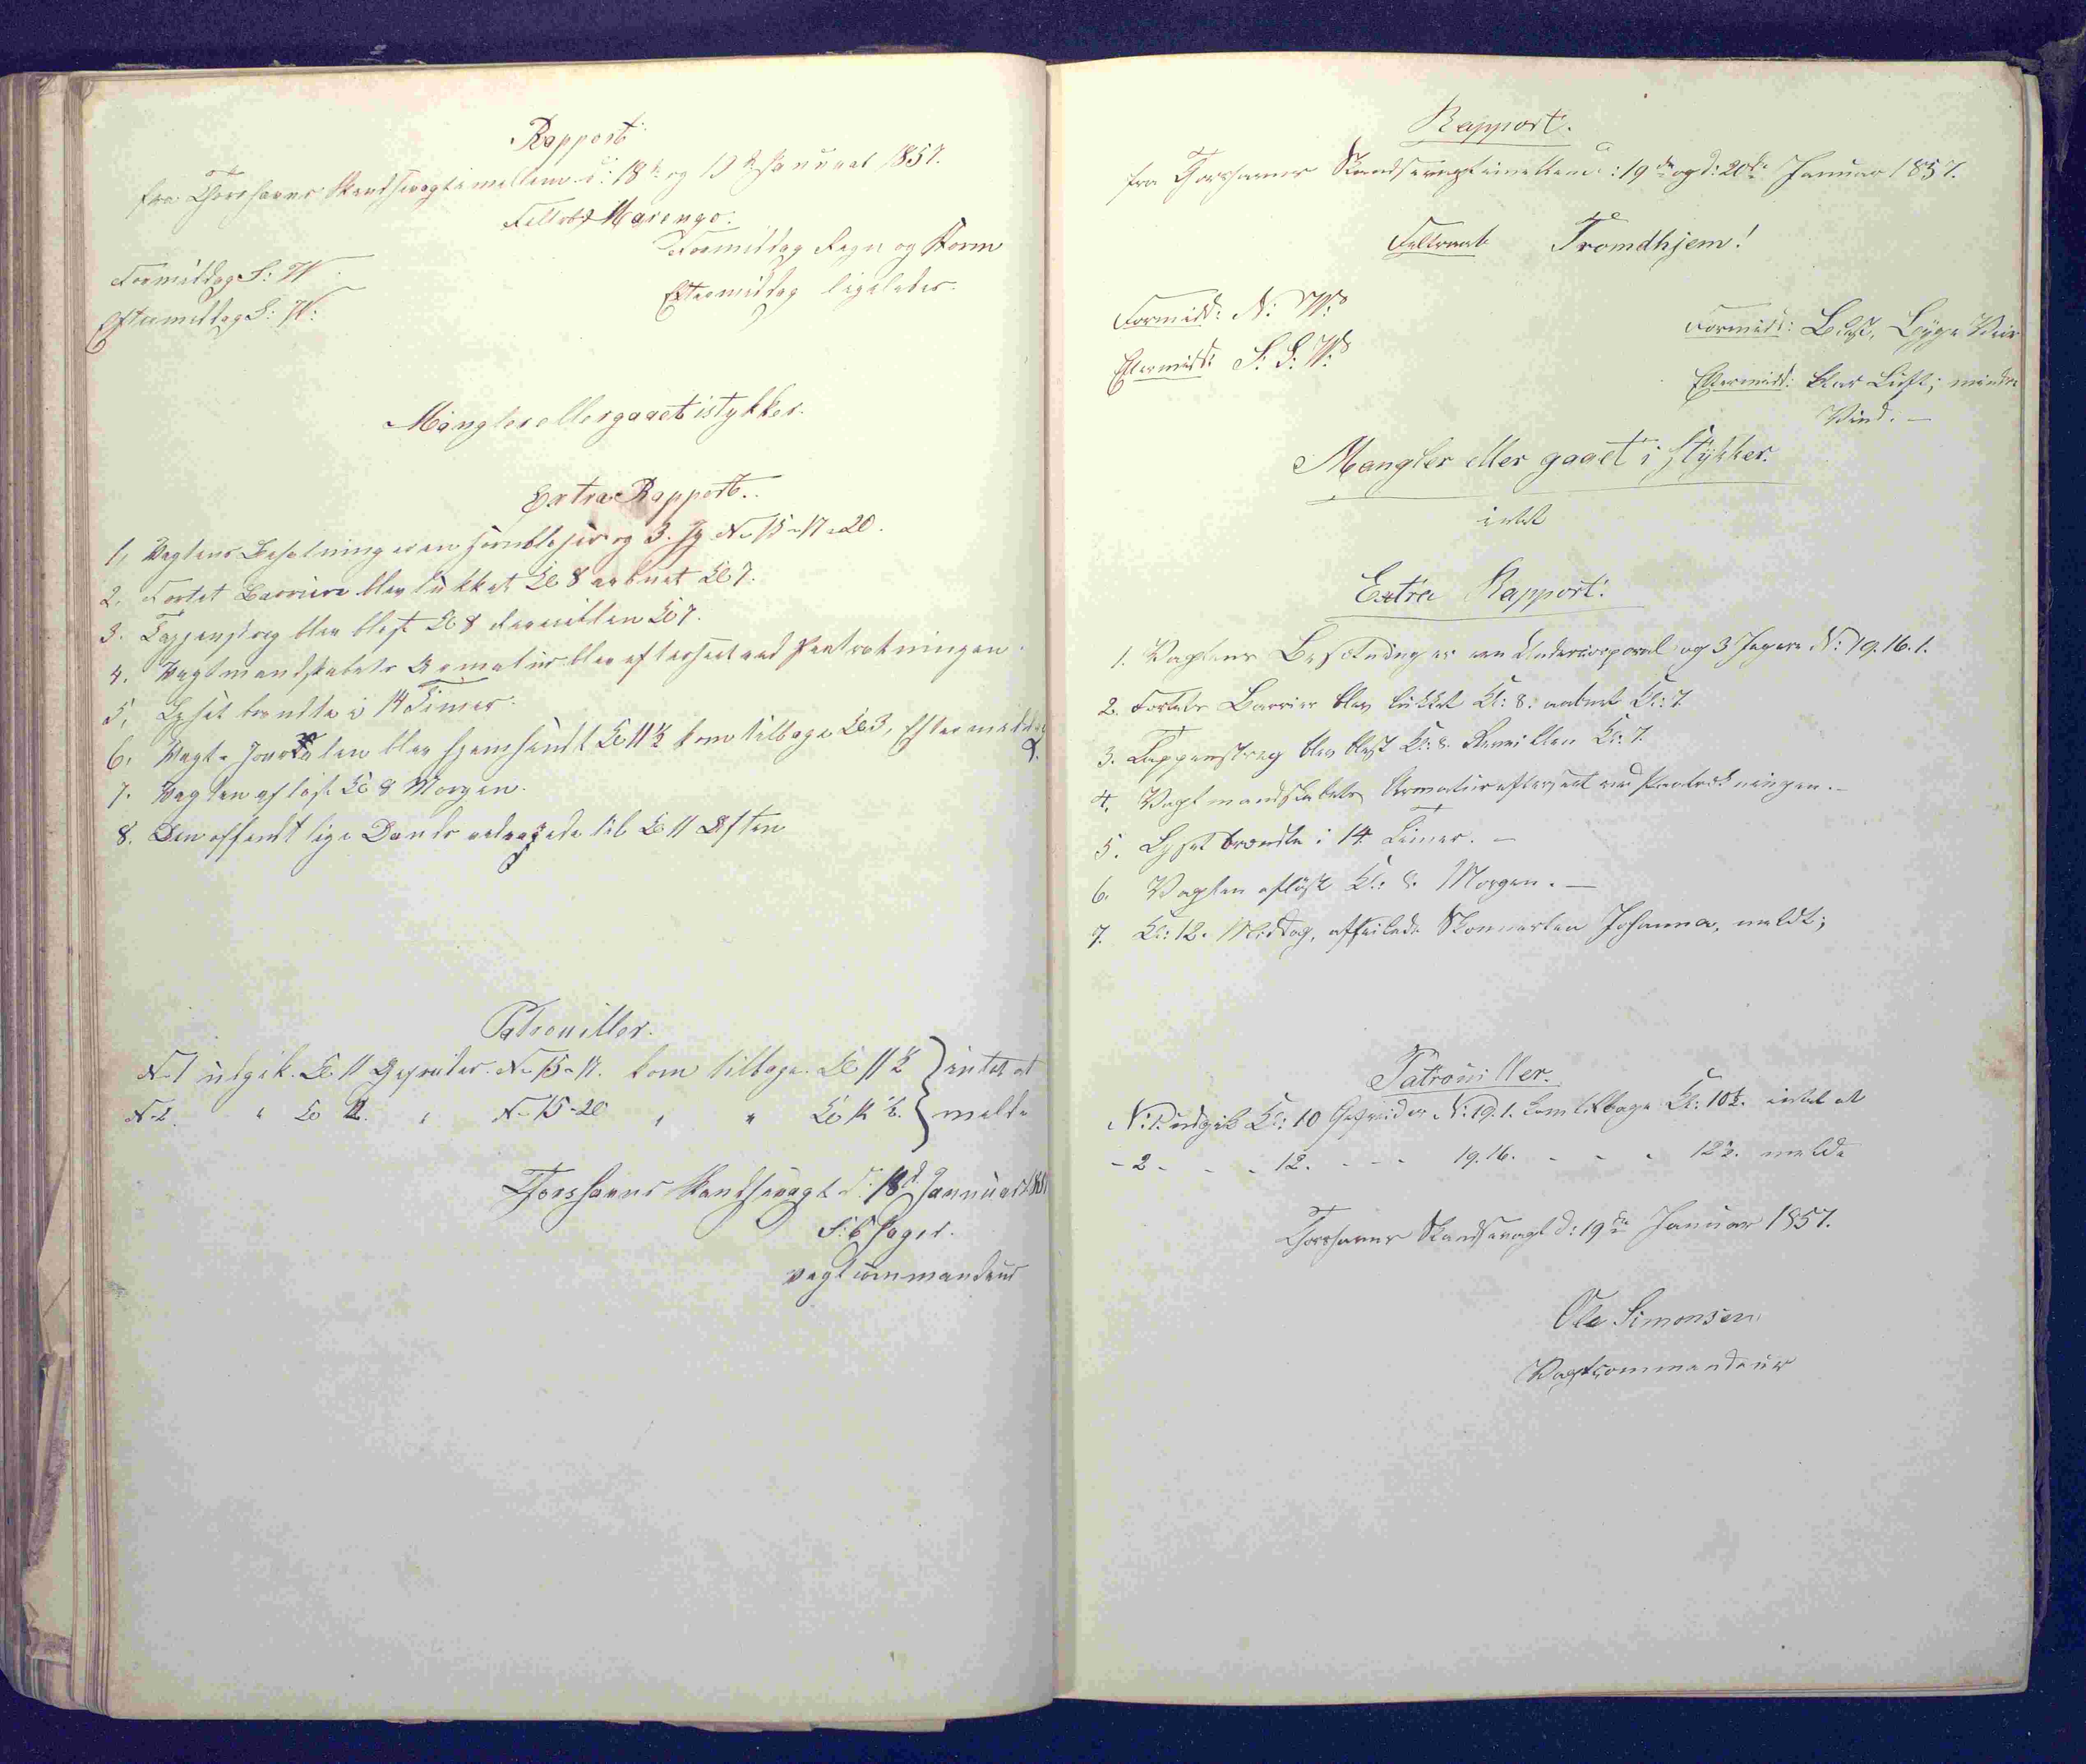 Rapport
fra Thorshavns Skandsevagt imellem d: 18de og 19de Januar 1857.
Feltraab Marengo.
Formiddag S: W:
Formiddag Regn og Storm
Eftermiddag S: W:
Eftermiddag ligeledes.
Mangler eller gaaet istykker.
Extra Rapport.
1, Vagtens Besætning er en Hornblæser og 3 Jg. No 15-17-20.
2, Fortet Barriere blev lukket Kl 8 aabnet Kl 7.
3. Tappenstreg blev blæst Kl 8 Reveillen Kl 7.
4. Vagtmandskabets Armatur blev efterseet ved Paatrækningen.
5, Lyset brændte i 14 Timer.
6, Vagt-Journalen blev hjemsendt Kl 11½ kom tilbage Kl 3, Eftermiddag.
7. Vagten afløst Kl 9 Morgen.
8. Den offentlige Dands vedvarede til Kl 11 Aften
Patrouiller.
No 1 udgik Kl 11 Gefreider No 15-17. kom tilbage Kl 11½ } intet at
No 2. " Kl 12. " No 15-20 " " Kl 12½. } melde
Thorshavns Skandsevagt d: 18de Januar 1857
Vagtcommandeur
Rapport.
fra Thorshavns Skandsevagt imellem d: 19de og d: 20de Januar 1857.
Feltraab Tromdhjem!
Formidd: N: W:
Formidd: Blæst, Byge Veir
Eftermidd: S. S: W:
Eftermidd: klar Luft; mindre
Vind. —
Mangler eller gaaet i Stykker.
intet
Extra Rapport:
1. Vagtens Besætning er een Undercorporal og 3 Jægere No: 19. 16. 1.
2. Fortets Barrier blev lukket Kl: 8: aabnet Kl: 7.
3. Tappenstreg blev blæst Kl: 8. Reveillen Kl: 7.
4. Vagtmandskabets Armatur efterseet ved Paatrækningen. —
5. Lyset brændte i 14 Timer. —
6. Vagten afløst Kl: 8. Morgen. —
7. Kl: 12. Middag, afseilede Skonnerten Johanna, meldt;
Patrouiller.
No: 1. udgik Kl: 10 Gefreider No: 19. 1. kom tilbage Kl: 10½. intet at
- 2 - - - 12. - - - 19. 16. - - - 12½. melde
Thorshavns Skandsevagt d: 19de Januar 1857.
Ole Simonsen
Vagtcommandeur